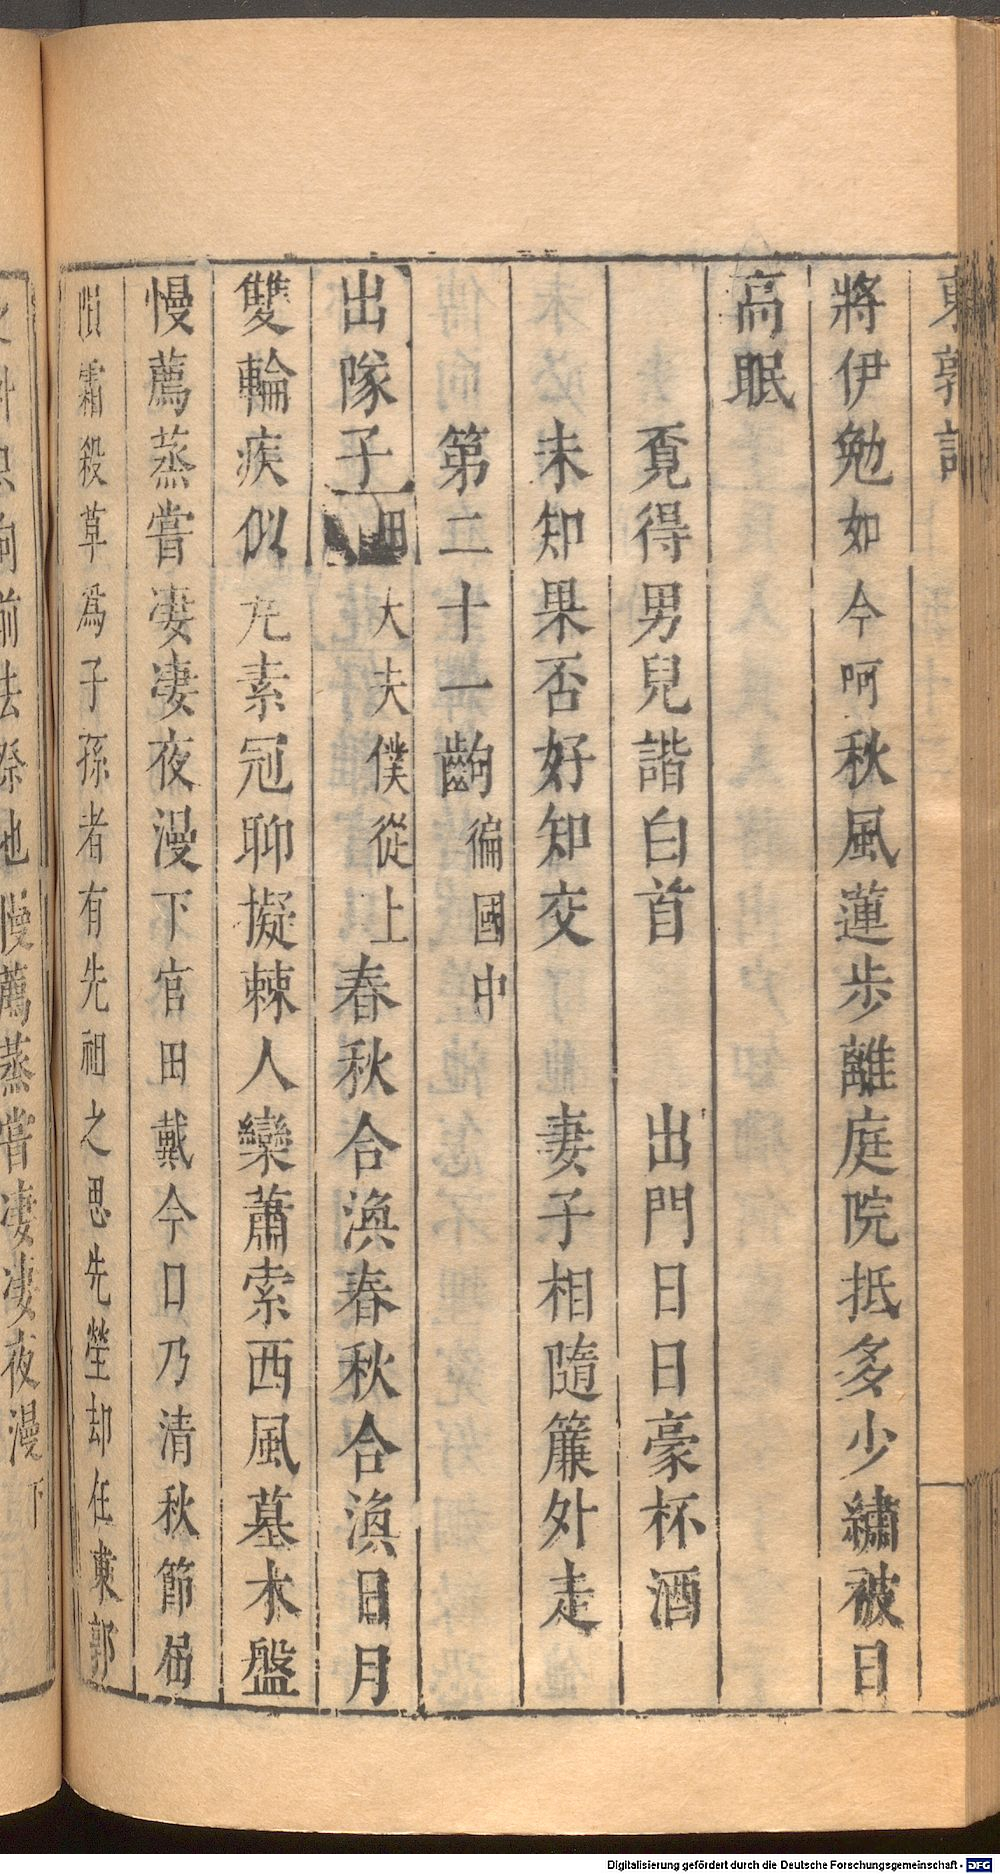 東郭記
將伊勉如今呵秋風蓮步離庭院抵多少繡被日
高眠
覔得男兒諧白首　出門日日豪杯酒
未知果否好知交　妻子相隨簾外走
第二十一齣徧國中
出隊子田大夫僕從上春秋合渙春秋合渙日月
雙輪疾似充素冠聊擬棘人欒蕭索西風墓木盤
慢薦蒸嘗凄凄夜漫下官田戴今日乃清秋節屆
隕霜殺草爲子孫者有先祖之思先塋却任東郭
慢薦蒸嘗凄凄夜漫下
Digitalisierung gefördert durch die Deutsche Forschungsgemeinschaft - DFG